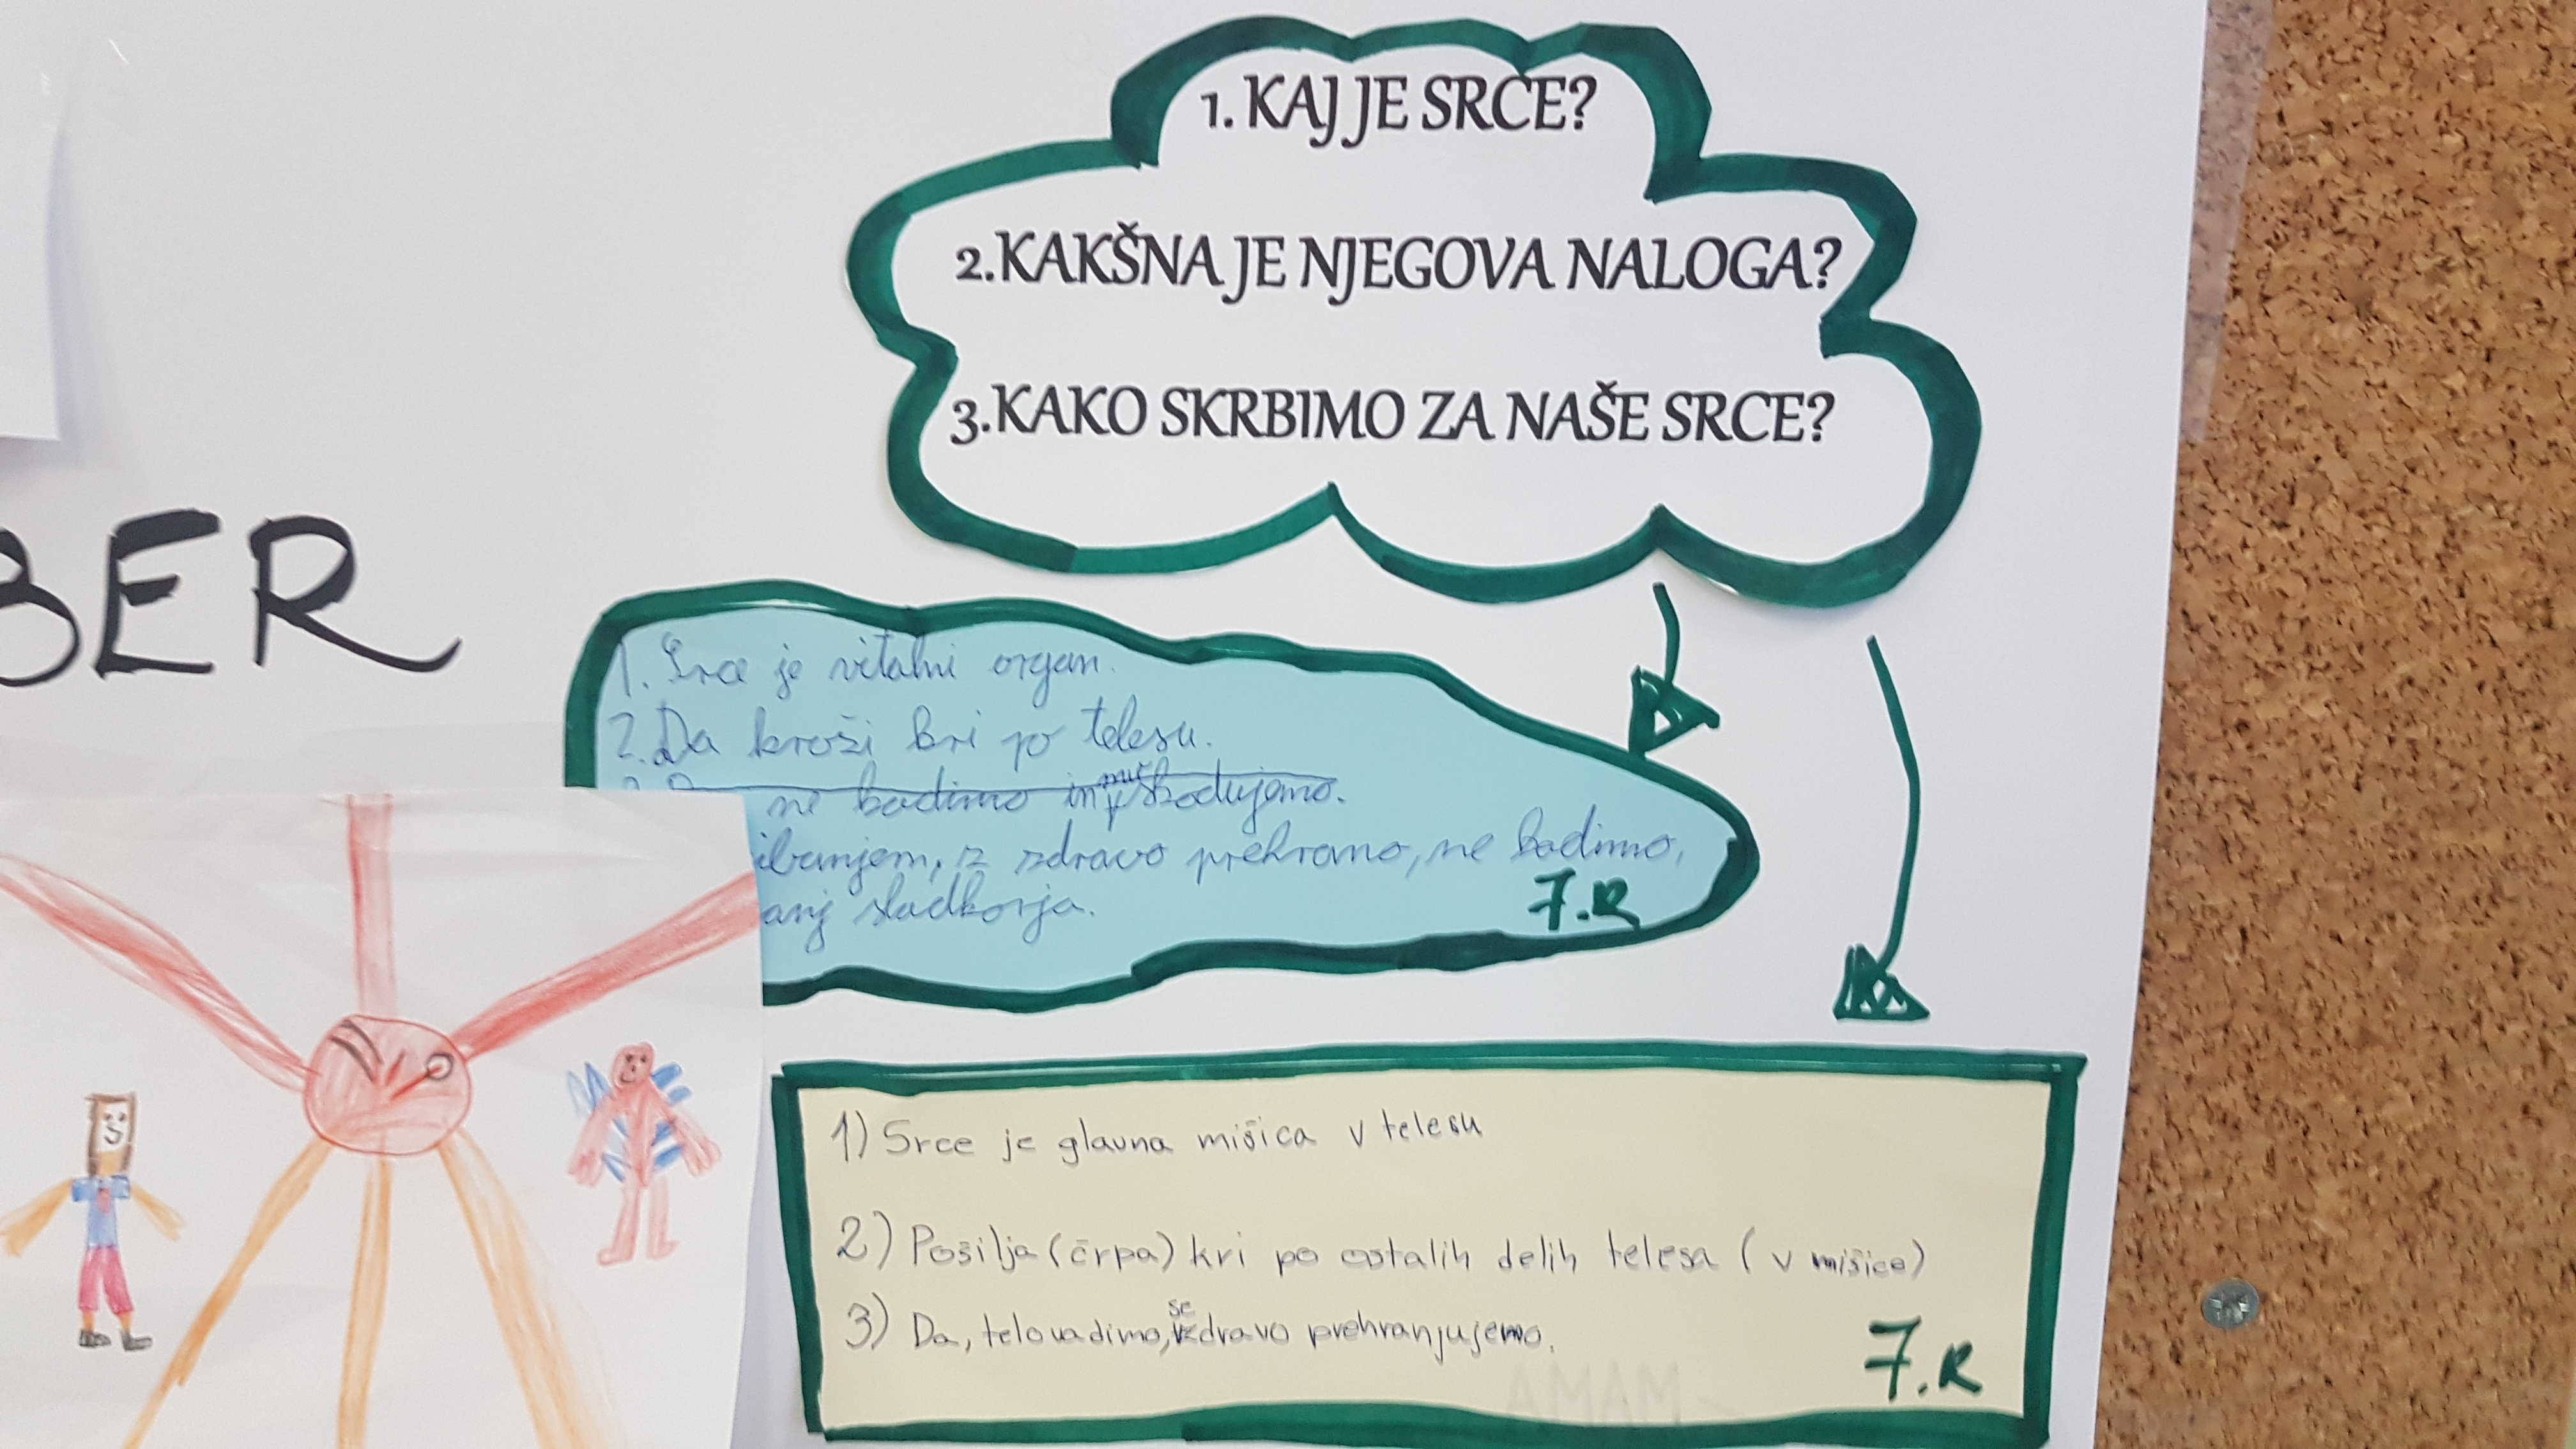 1. KAJ JE SRCE?
2. KAKŠNA JE NJEGOVA NALOGA?
3. KAKO SKRBIMO ZA NAŠE SRCE?
BER
1. Srce je vitalni organ.
2. Da kroži kri po telesu.
ne kadimo in škodujemo.
ibanjem, iz zdravo prehrano, ne kadimo,
anj sladkorja.
7.R
1) Srce je glavna mišica v telesu
2) Pošilja (črpa) kri po ostalih delih telesa (v mišice)
3) Da, telovadimo, se zdravo prehranjujemo.
7.R